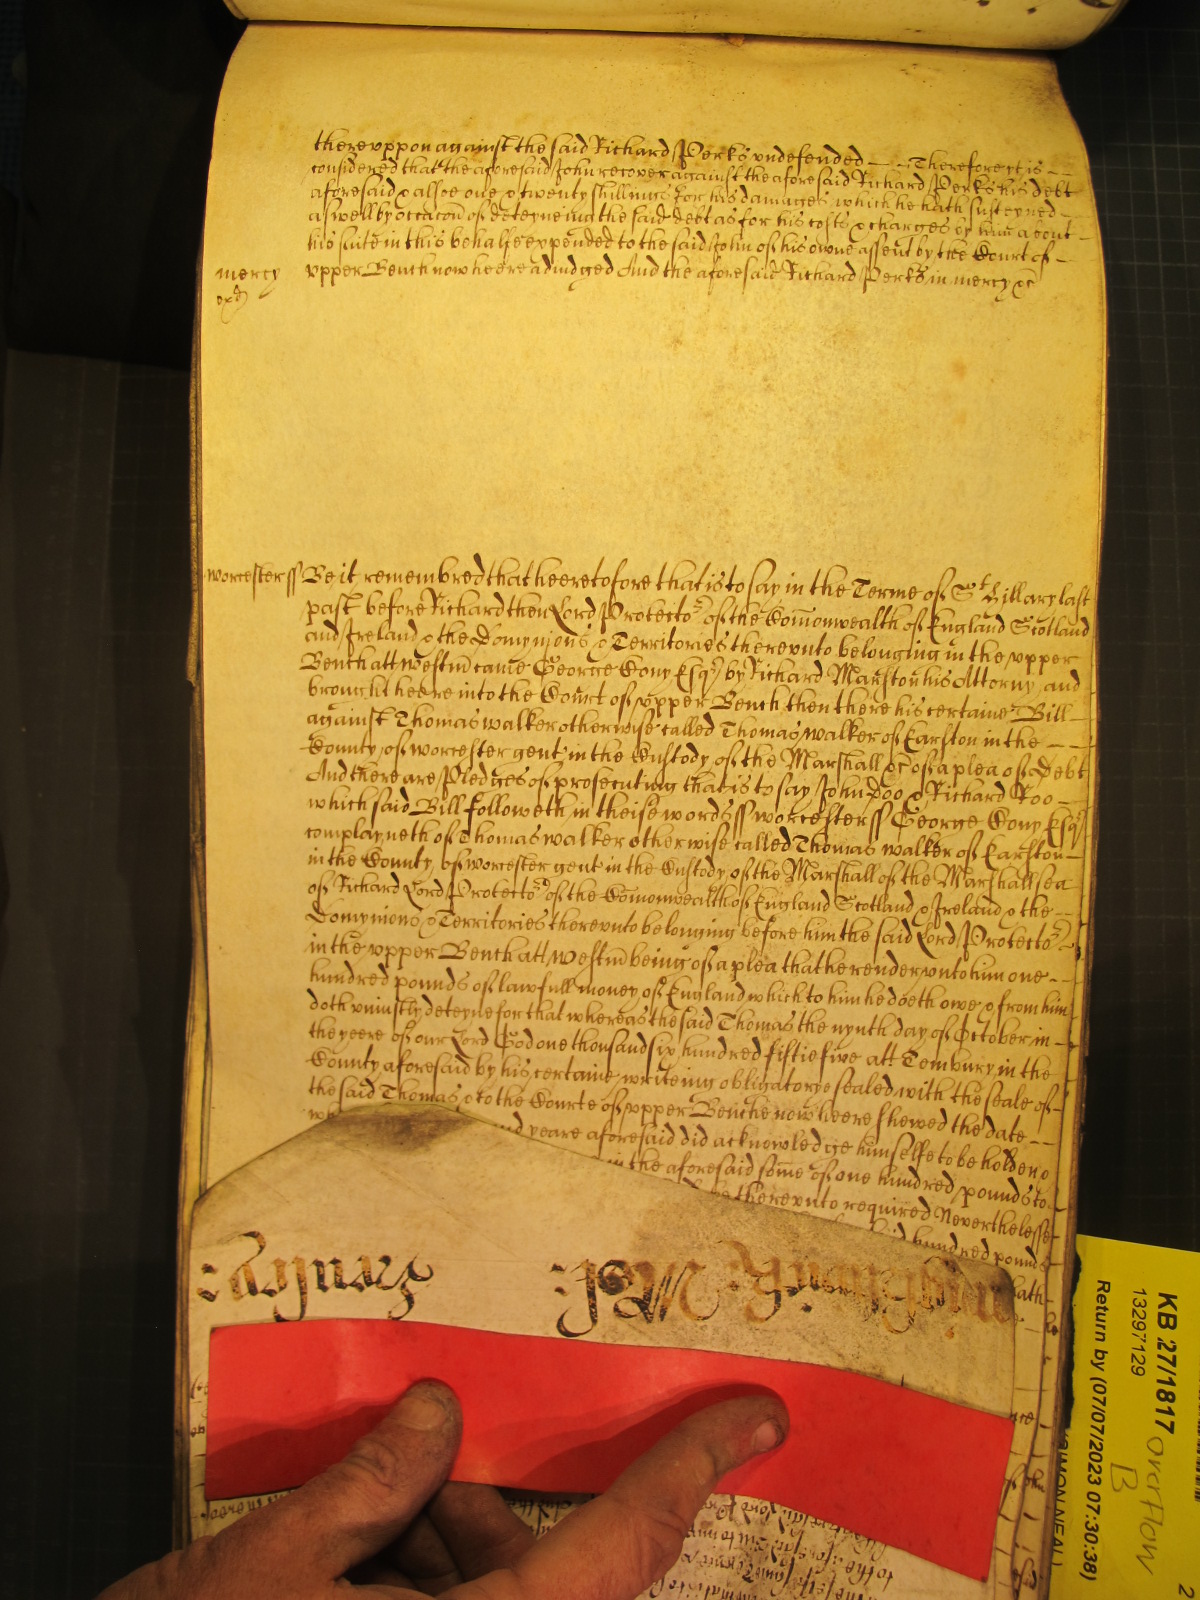 thereuppon against the said Richard Perks undefended — Therefore yt is —
considered that the aforesaid John recover against the aforesaid Richard Perks his debt
aforesaid & alsoe one & twenty shillings for his damages which he hath susteyned —
aswell by occacon of deteyneing the said debt as for his costs & charges by him about
his suite in this behalfe expended to the said John of his owne assent by the Court of —
mercy upper Bench now heere adiudged And the aforesaid Richard Perks in mercy &c
worcester ss Be it remembred that heeretofore that is to say in the Terme of St Hillary last
past before Richard then Lord Protector of the Comonwealth of England Scotland
and Ireland & the Domynions & Territories thereunto belonging in the upper
Bench att Westm came George Cony Esqr by Richard Marston his Attorny and
brought heere into the Court of upper Bench then there his certaine Bill
against Thomas walker otherwise called Thomas walker of Earlston in the —
County of worcester gent in the Custody of the Marshall &c of a plea of Debt
And there are Pledges of prosecuting that is to say John Doo & Richard Roo —
which said Bill followeth in theise words ss worcester ss George Cony Esqr
complayneth of Thomas walker otherwise called Thomas walker of Earlston —
in the County of worcester gent in the Custody of the Marshall of the Marshallsea
of Richard Lord Protector of the Comonwealth of England Scotland & Ireland & the —
Domynions & Territories thereunto belonging before him the said Lord Protector
in the upper Bench att Westm being of a plea that he render unto him one —
hundred pounds of lawfull money of England which to him he doeth owe & from him
doth uniustly deteyne for that whereas the said Thomas the nynth day of October in —
the yeere of our Lord God one thousand six hundred fiftie five att Tembury in the
County aforesaid by his certaine writeing obligatorye sealed with the seale of
the said Thomas & to the Courte of upper Benche now heere shewed the date —
yeare aforesaid did acknowledge himselfe to be holden
in the aforesaid some of one hundred pounds to
thereunto required Neverthelesse
said hundred pounds
hath
KB 27/1817
13297129
Return by (07/07/2023 07:30:38)
SIMON NEAL
Overflow
B
2